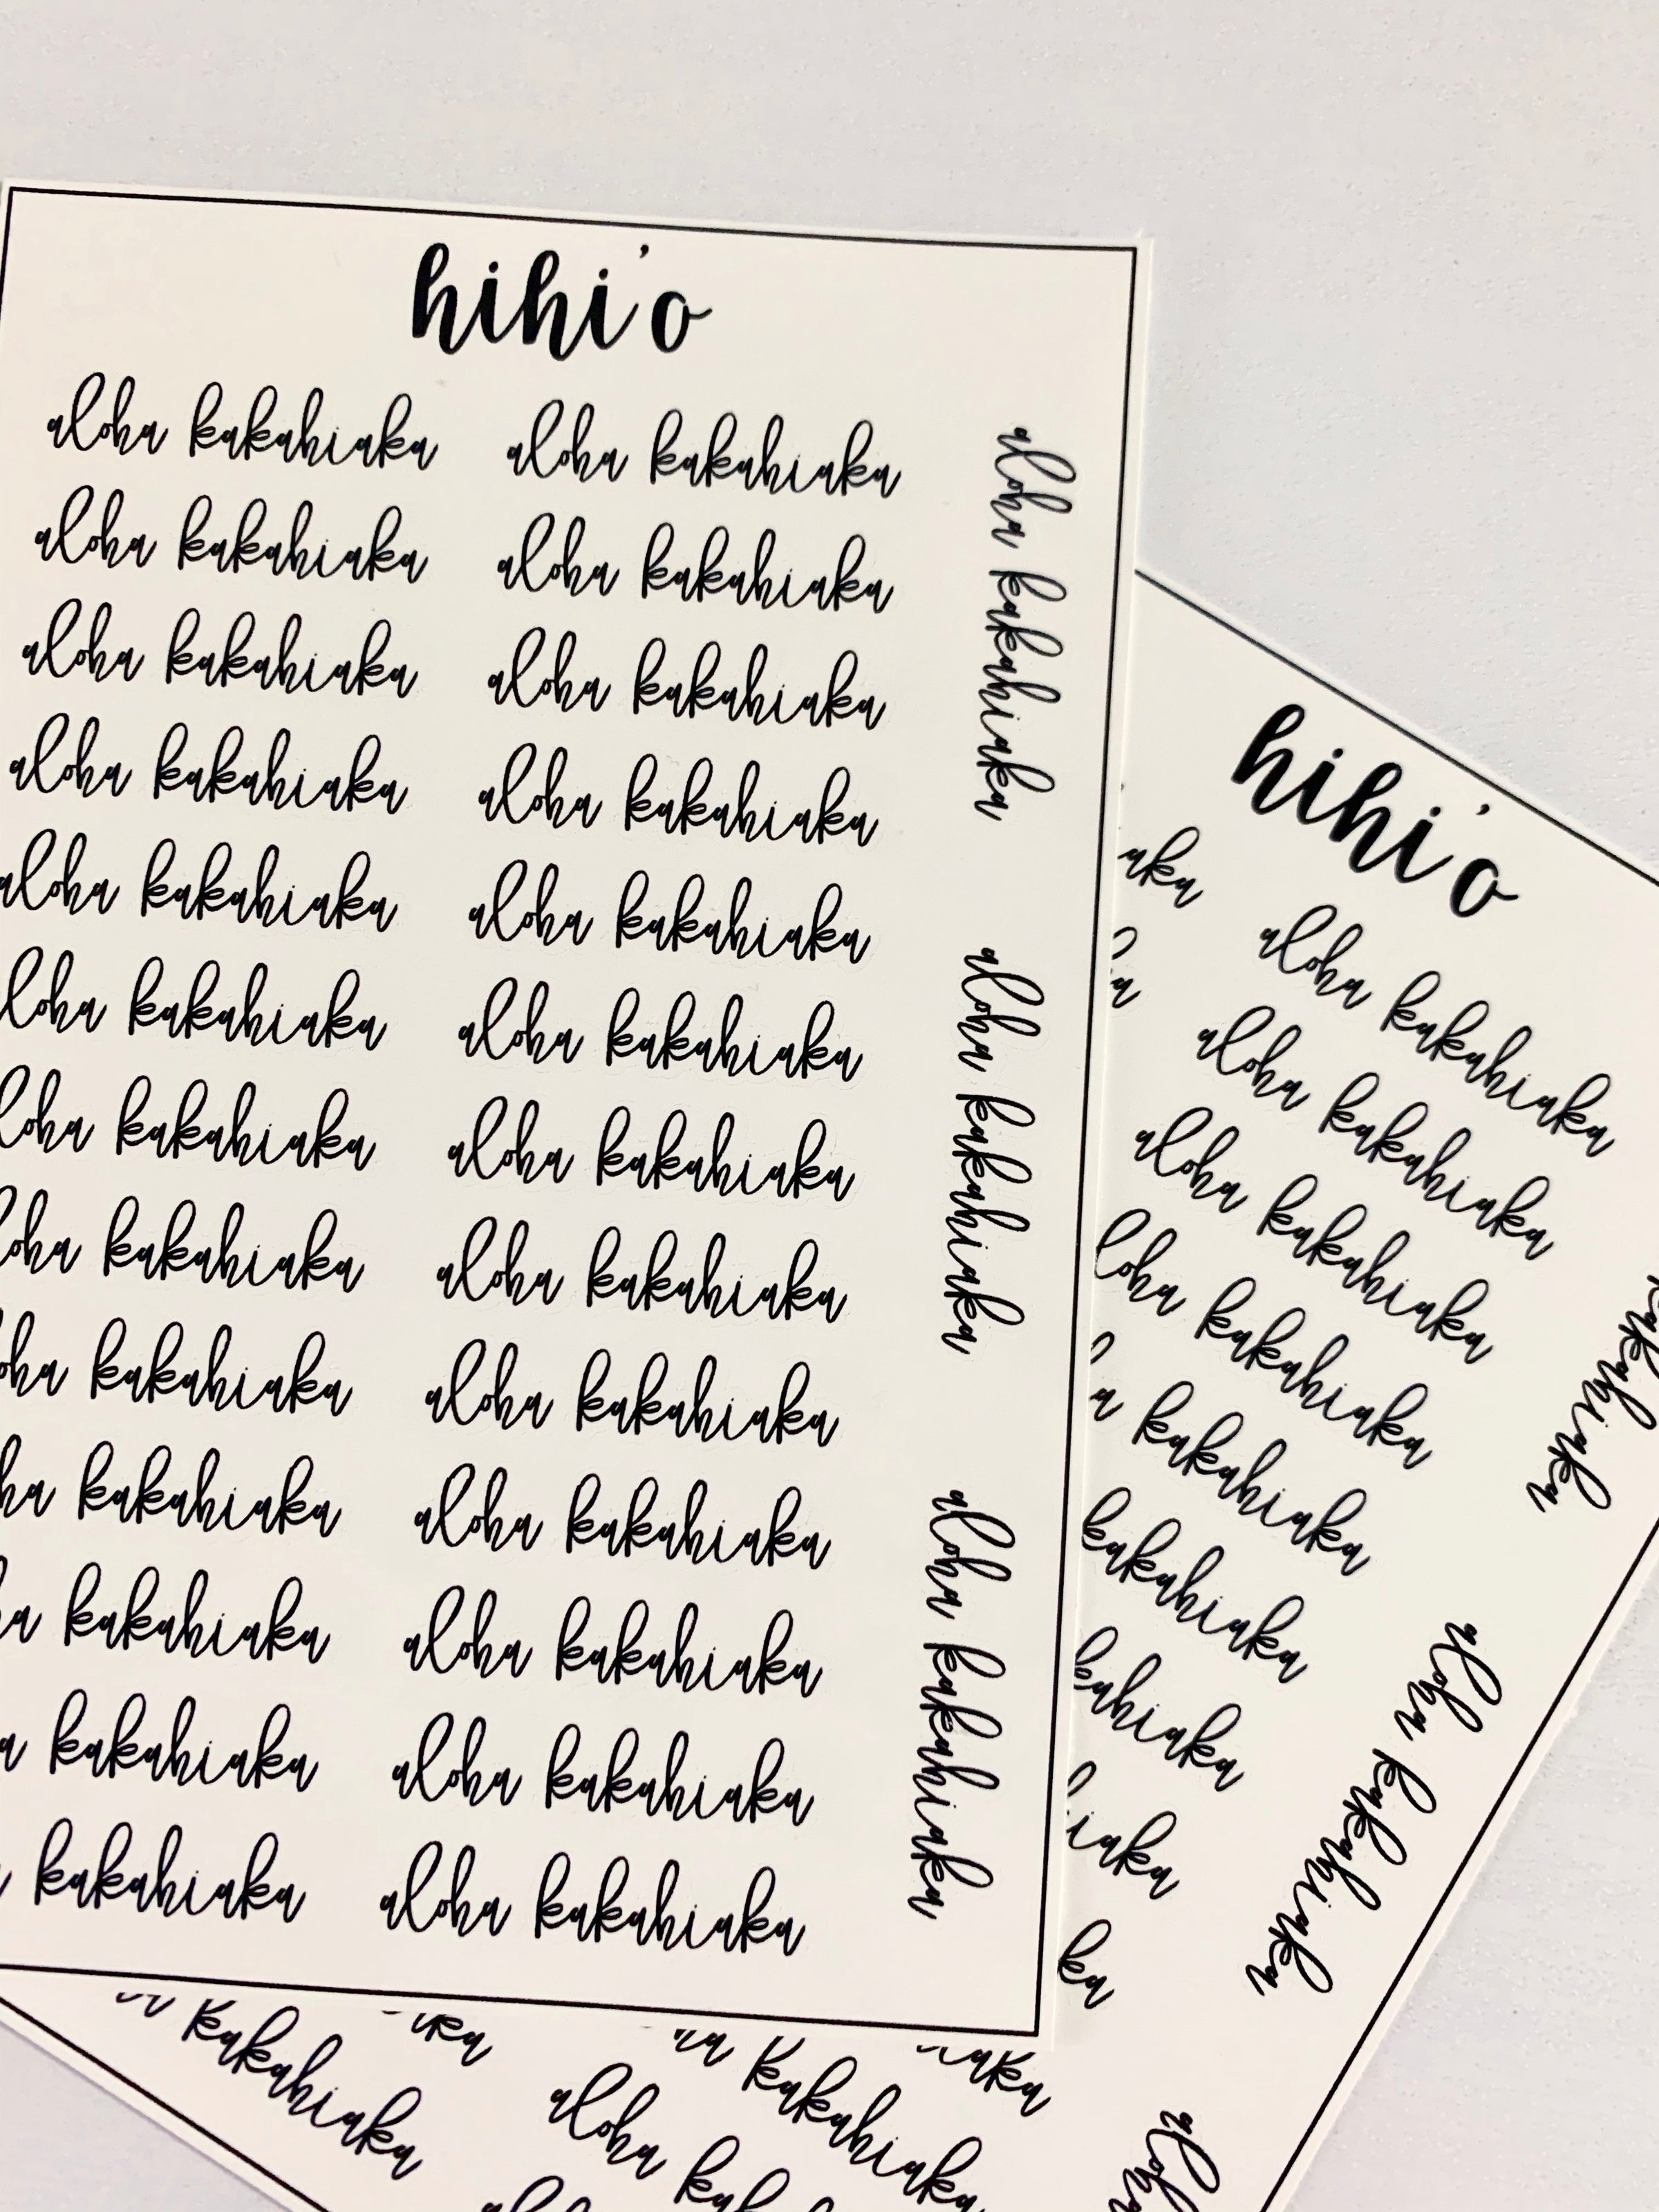 hihi'o
aloha kakahiaka aloha kakahiaka
aloha kakahiaka aloha kakahiaka
aloha kakahiaka aloha kakahiaka
aloha kakahiaka aloha kakahiaka
aloha kakahiaka aloha kakahiaka
loha kakahiaka aloha kakahiaka
loha kakahiaka aloha kakahiaka
oha kakahiaka aloha kakahiaka
oha kakahiaka aloha kakahiaka
ha kakahiaka aloha kakahiaka
a kakahiaka aloha kakahiaka
a kakahiaka aloha kakahiaka
kakahiaka aloha kakahiaka
aloha kakahiaka
aloha kakahiaka
aloha kakahiaka
hihi'o
aka aloha kakahiaka
a aloha kakahiaka
aloha kakahiaka
loha kakahiaka
a kakahiaka
kakahiaka
kahiaka
iaka
ka
kakahiaka
aloha kakahiaka
aloha
kakahiaka
aloha
kakahiaka
aka